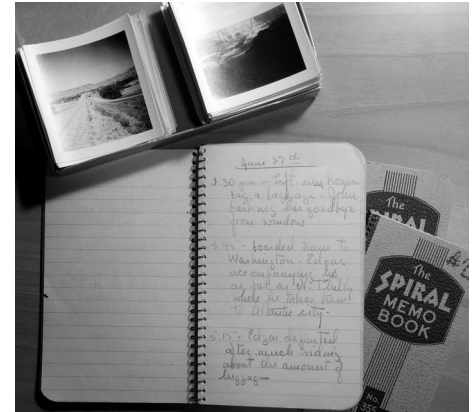 June 27th
2:30 pm. - Left
bag & baggage - John
barking his goodbys
from window
3:45 - boarded train to
Washington - Edgar
accompanying us
as far as N. Philly
where he takes train
to Atlantic city.
5:15 - Edgar departed
after much kidding
about the amount of
luggage
The
SPIRAL
The
SPIRAL
MEMO
BOOK
No.
355